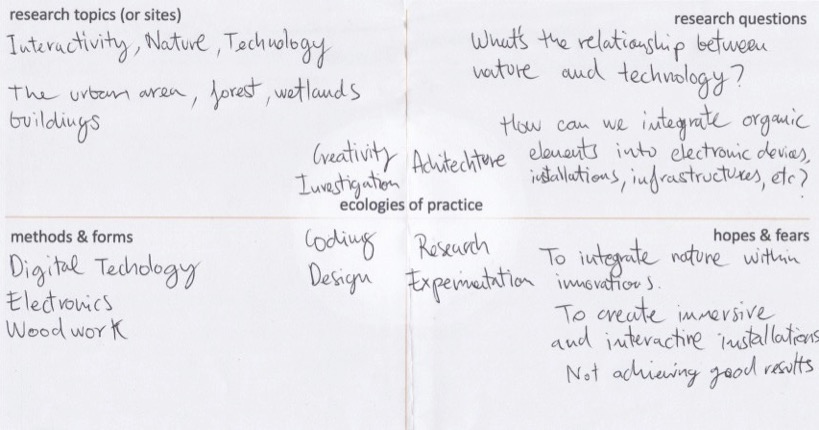 research topics (or sites)
Interactivity, Nature, Technology
The urban area, forest, wetlands
buildings
research questions
What's the relationship between
nature and technology?
How can we integrate organic
elements into electronic devies,
installations, infrastructures, etc?
Creativity
Investigation
Achitechture
ecologies of practice
Coding
Design
Research
Experimentation
methods & forms
Digital Techology
Electronics
Woodwork
hopes & fears
To integrate nature within
innovations.
To create immersive
and interactive installations
Not achieving good results